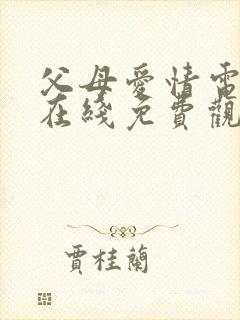 父母愛情電
在綫免費觀
賈桂蘭